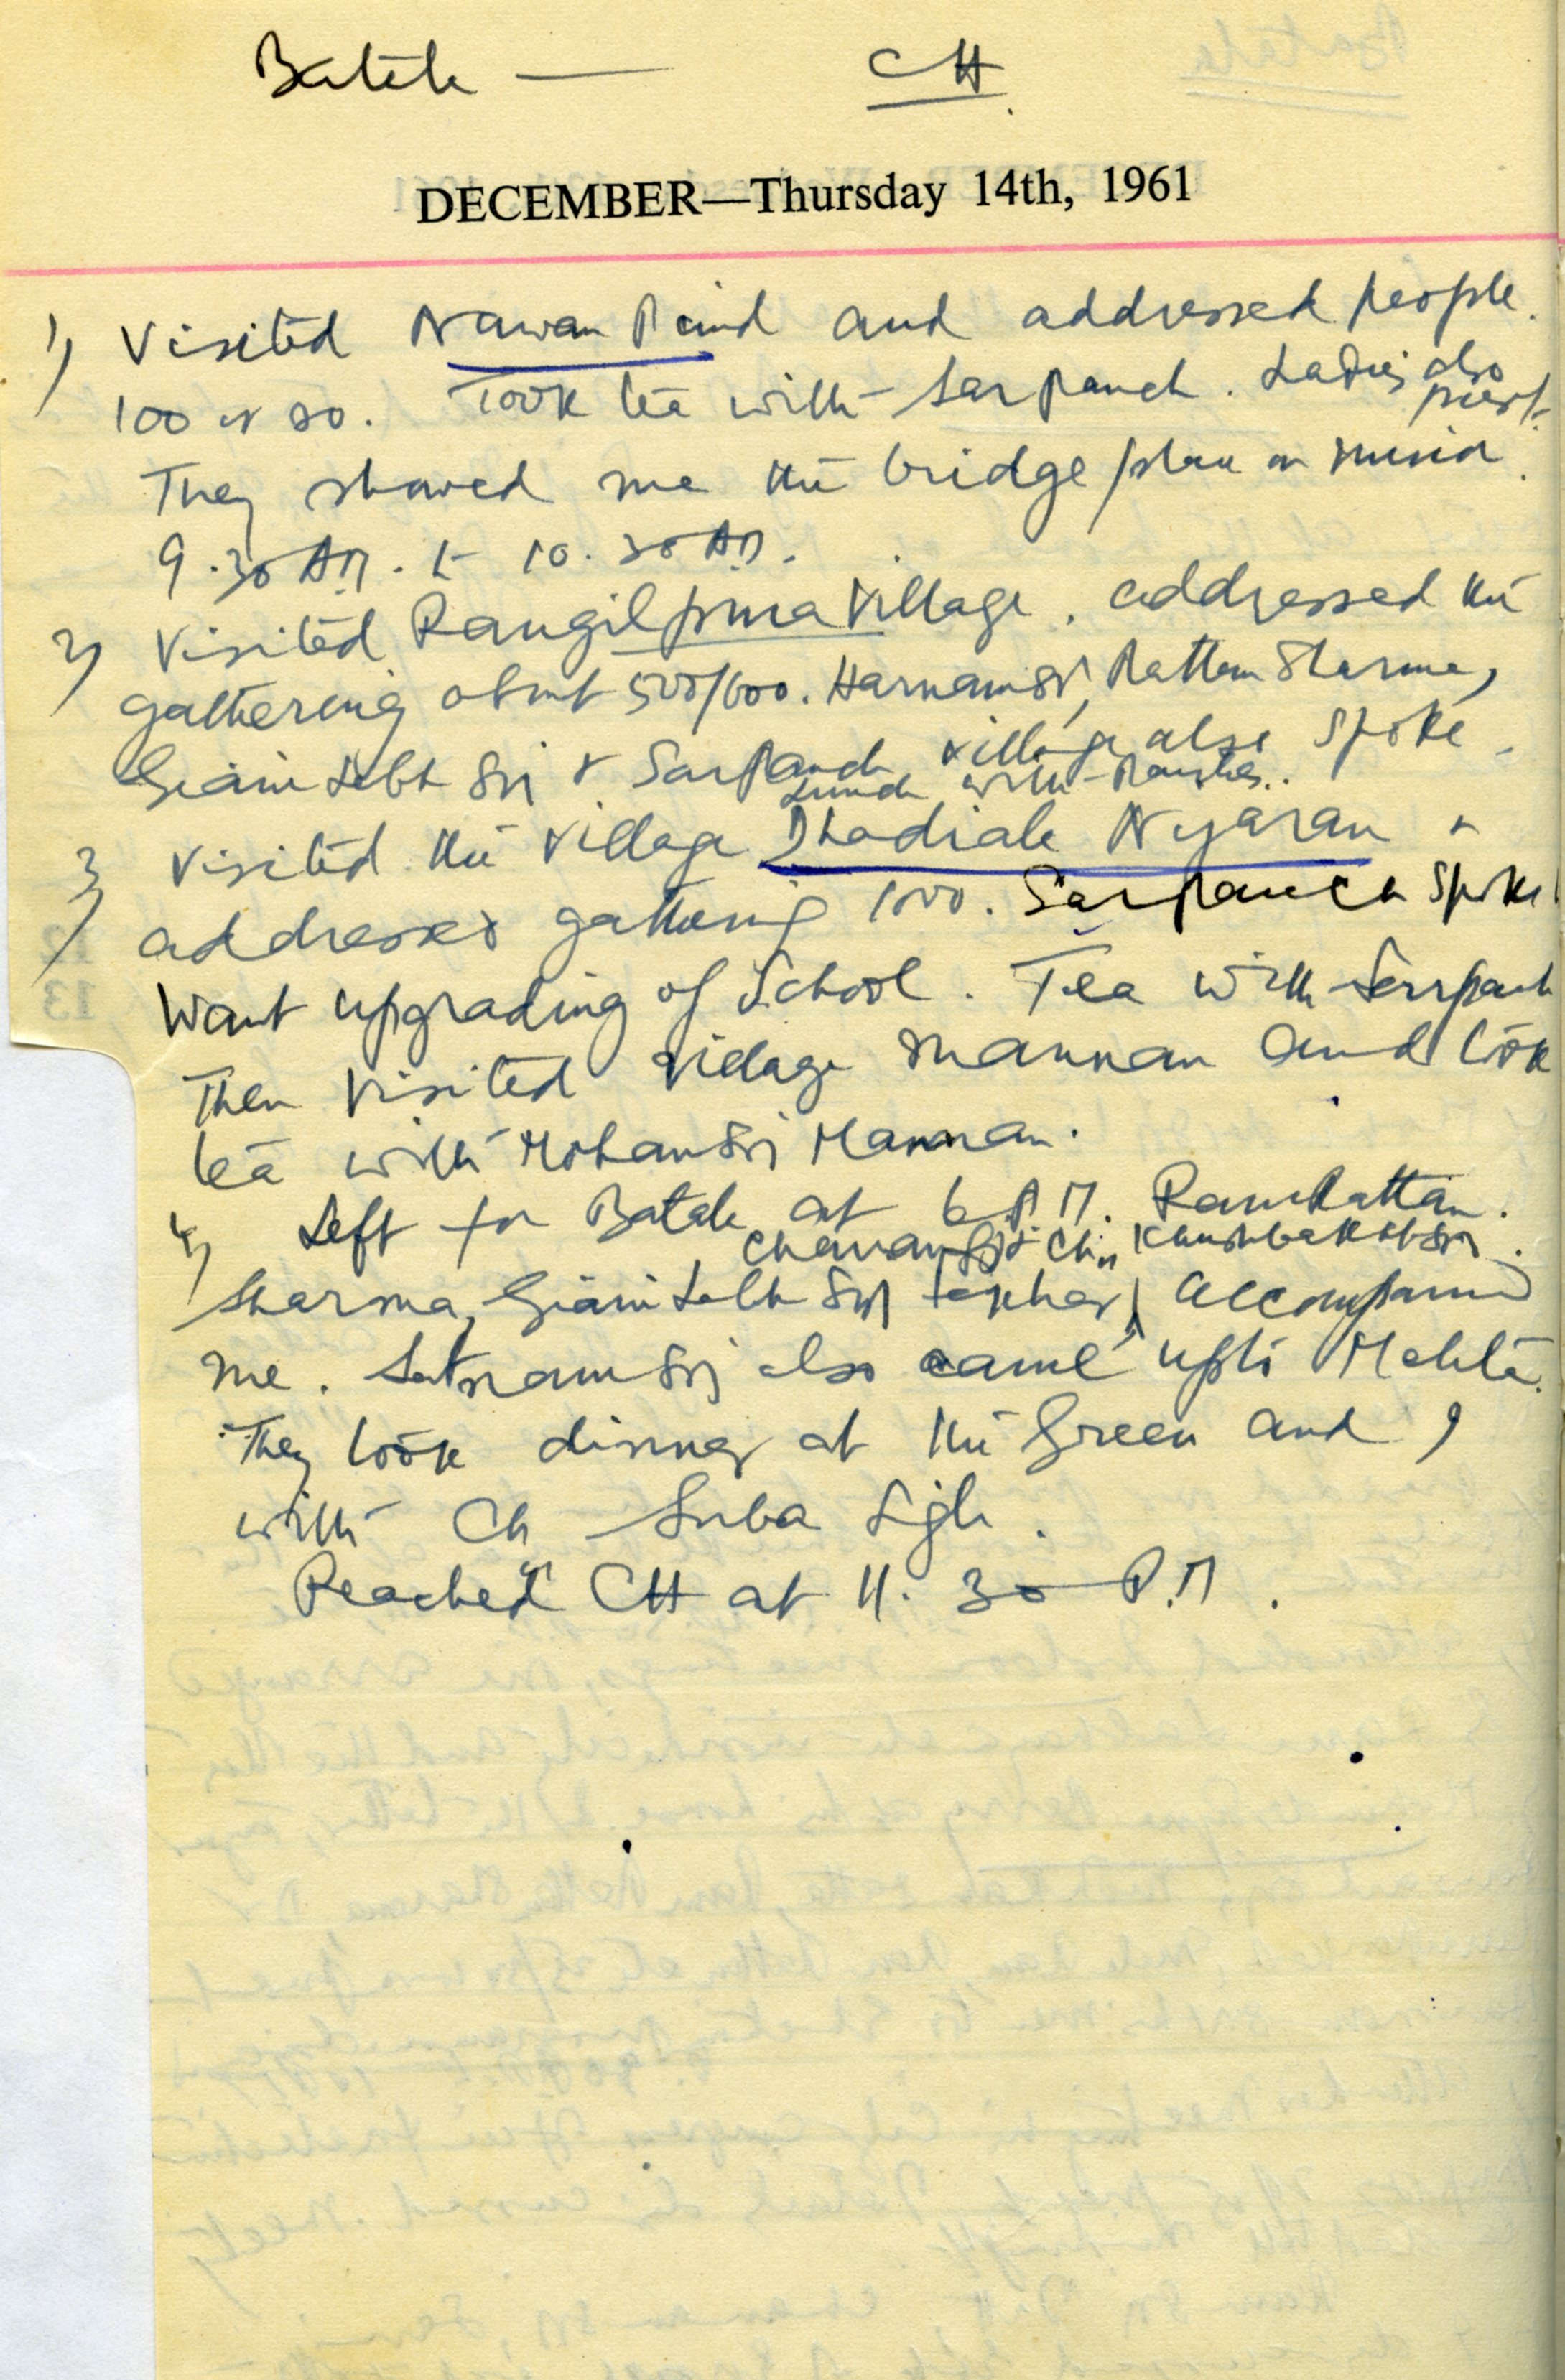 Batala — CH
DECEMBER—Thursday 14th, 1961
1) Visited Nawan Pind and addressed people.
100 or so. Took tea with Sarpanch. Ladies also
present.
They showed me the bridge place on
9.30 A.M. to 10.30 A.M.
2) Visited Rangilpura Village. addressed the
gathering about 500/600. Harnam Sr, Rattan Sharma,
Giani Labh Sri & Sarpanch village also spoke.
Lunch with
3) Visited the village Dhadiala Nyaran &
addressed gathering 1000. Sarpanch spoke.
Want upgrading of School. Tea with Sarpanch
Then visited village Mannan and took
tea with Mohan Sri Mannan.
4) Left for Batala at 6 P.M. Ram Rattan.
Chanan Sri & Ch. Khushbakht Sri.
Sharma, Giani Labh Sri accompanied
me. Satnam Sri also came upto Mehta.
They took dinner at the Green and I
with Ch Suba Sigh.
Reached CH at 11.30 P.M.